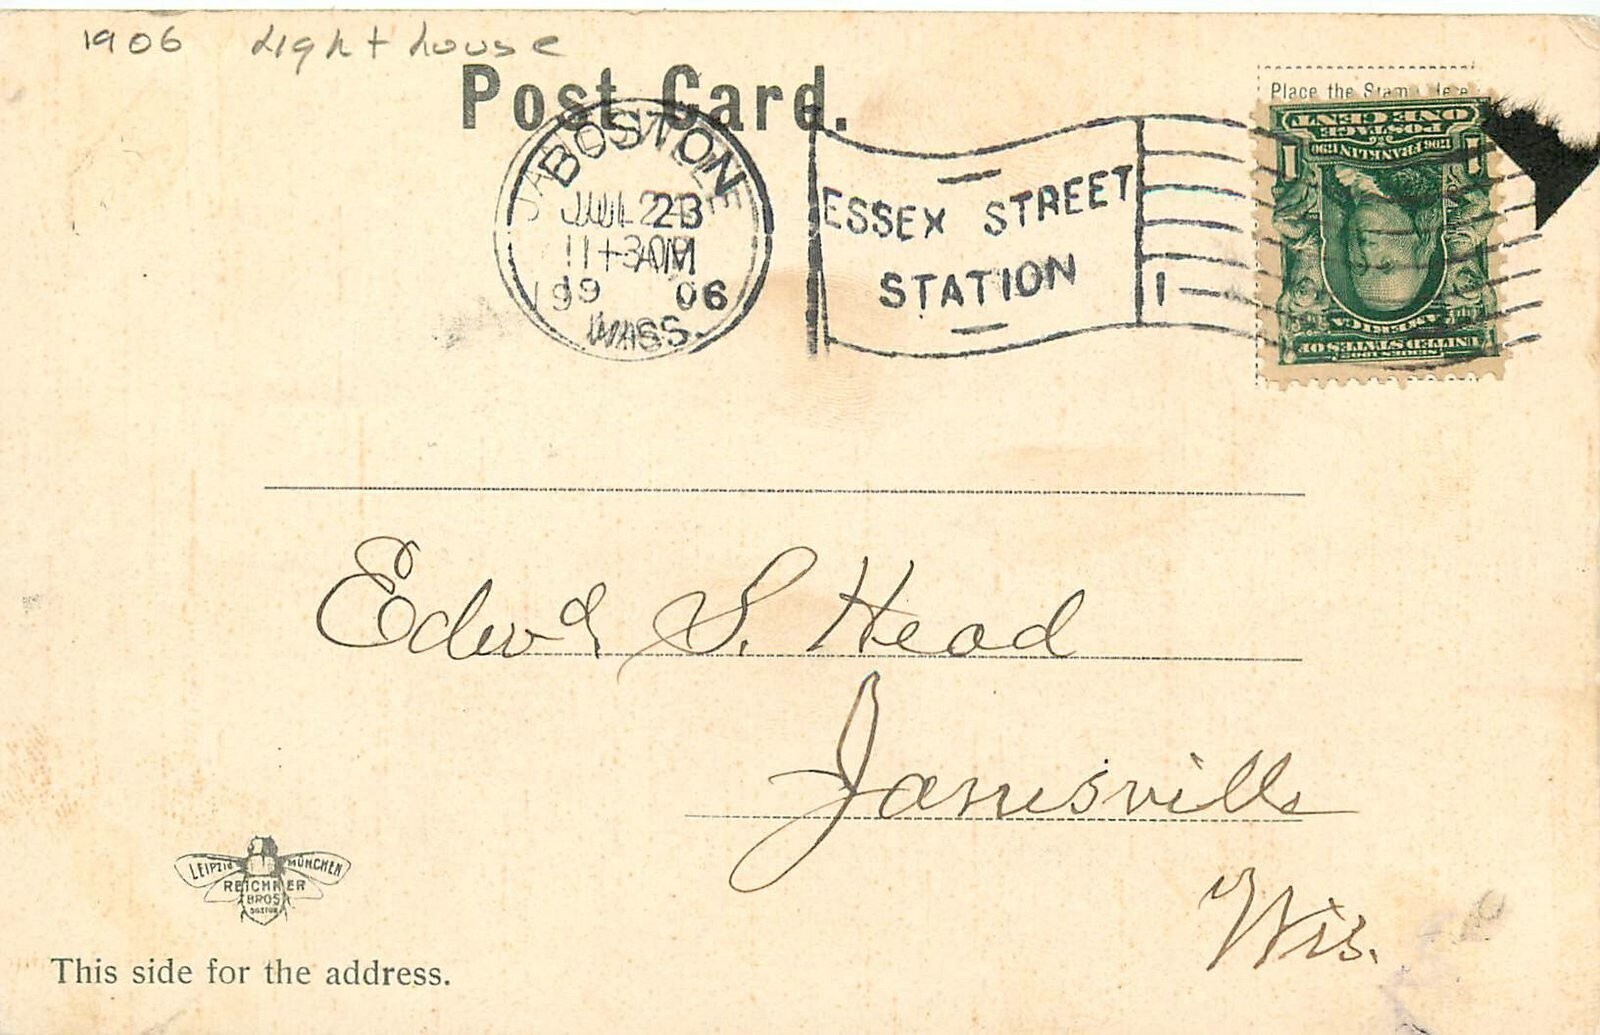 1906 Lighthouse
Post Card.
Place the Stamp Here
BOSTON
JUL 23
11-AM
19 06
MASS.
ESSEX STREET
STATION
1
ONE CENT
POSTAGE
1706 FRANKLIN 1790
1 1
SERIES 1902
UNITED STATES OF
AMERICA
Edwd S. Head
Janesville
Wis.
LEIPZIG MÜNCHEN
REICHNER
BROS
BOSTON
This side for the address.